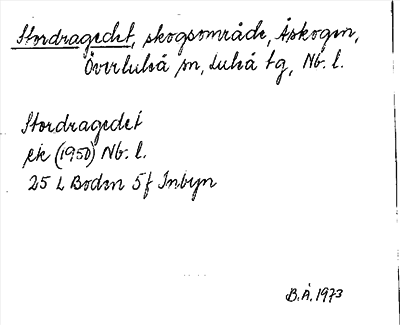 Stordragedet, skogsområde, Åskogen,
Överluleå sn, Luleå tg, Nb. l.
Stordragedet
ek (1950) Nb. l.
25 L Boden 5f Inbyn
B.Å. 1973